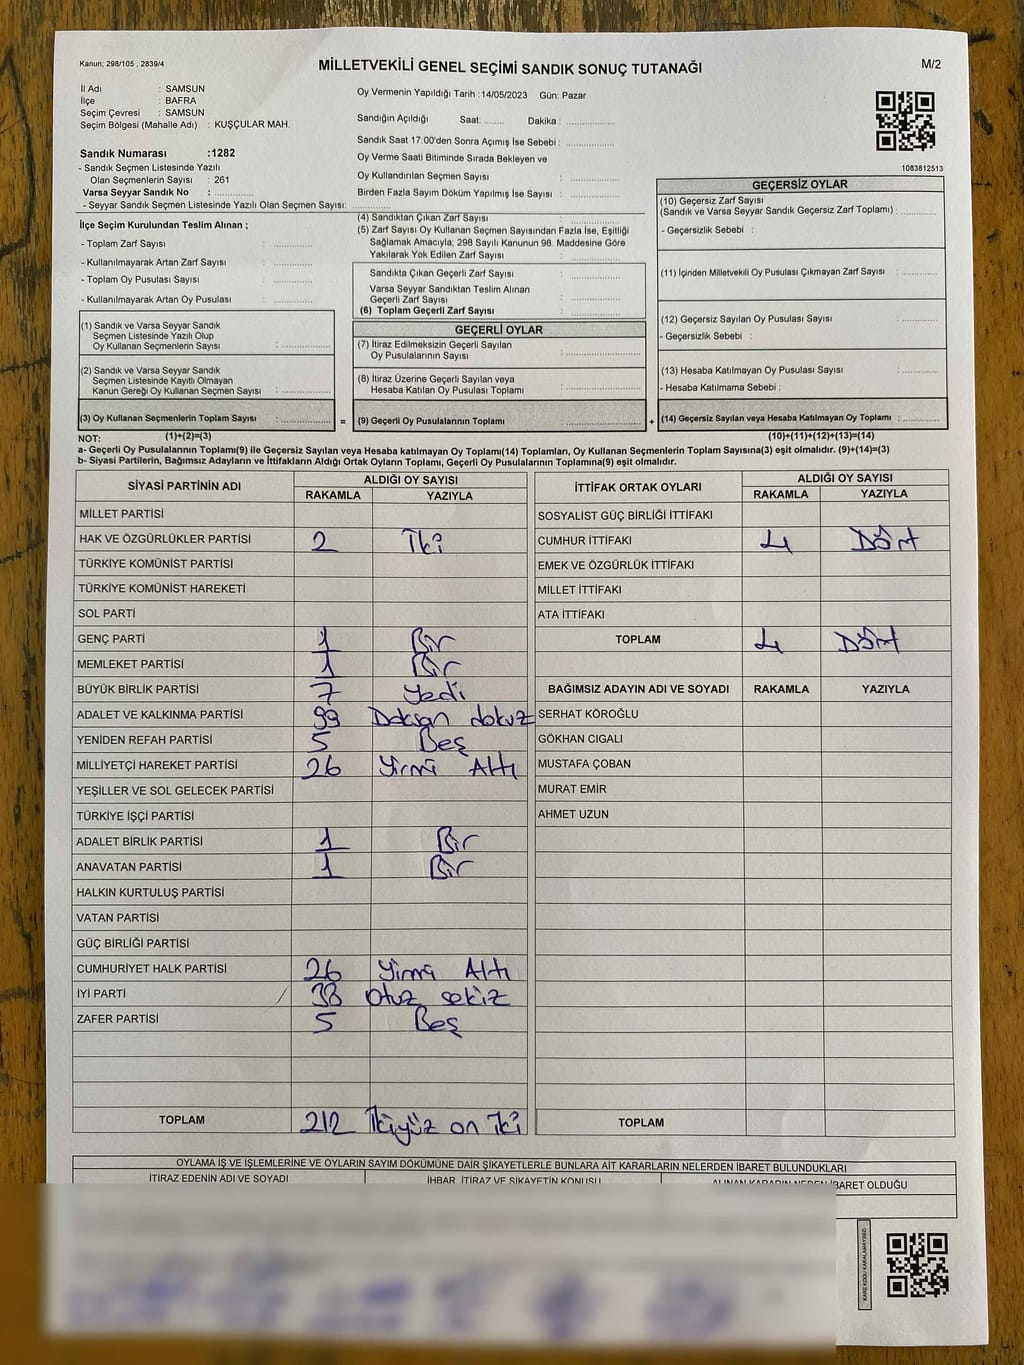 Kanun; 298/105 , 2839/4
MİLLETVEKİLİ GENEL SEÇİMİ SANDIK SONUÇ TUTANAĞI
M/2
İl Adı : SAMSUN
İlçe : BAFRA
Seçim Çevresi : SAMSUN
Seçim Bölgesi (Mahalle Adı) : KUŞÇULAR MAH.
Sandık Numarası :1282
- Sandık Seçmen Listesinde Yazılı
Olan Seçmenlerin Sayısı : 261
Varsa Seyyar Sandık No : ..............
- Seyyar Sandık Seçmen Listesinde Yazılı Olan Seçmen Sayısı: ..............
Oy Vermenin Yapıldığı Tarih :14/05/2023 Gün: Pazar
Sandığın Açıldığı Saat: ........ Dakika : ..............
Sandık Saat 17:00'den Sonra Açımış İse Sebebi : ..............
Oy Verme Saati Bitiminde Sırada Bekleyen ve
Oy Kullandırılan Seçmen Sayısı : ..............
Birden Fazla Sayım Döküm Yapılmış İse Sayısı : ..............
1083812513
İlçe Seçim Kurulundan Teslim Alınan ;
- Toplam Zarf Sayısı : ..............
- Kullanılmayarak Artan Zarf Sayısı : ..............
- Toplam Oy Pusulası Sayısı : ..............
- Kullanılmayarak Artan Oy Pusulası : ..............
(1) Sandık ve Varsa Seyyar Sandık
Seçmen Listesinde Yazılı Olup
Oy Kullanan Seçmenlerin Sayısı : ..............
(2) Sandık ve Varsa Seyyar Sandık
Seçmen Listesinde Kayıtlı Olmayan
Kanun Gereği Oy Kullanan Seçmen Sayısı : ..............
(3) Oy Kullanan Seçmenlerin Toplam Sayısı : ..............
(1)+(2)=(3)
(4) Sandıktan Çıkan Zarf Sayısı : ..............
(5) Zarf Sayısı Oy Kullanan Seçmen Sayısından Fazla İse, Eşitliği
Sağlamak Amacıyla; 298 Sayılı Kanunun 98. Maddesine Göre
Yakılarak Yok Edilen Zarf Sayısı : ..............
Sandıkta Çıkan Geçerli Zarf Sayısı : ..............
Varsa Seyyar Sandıktan Teslim Alınan
Geçerli Zarf Sayısı : ..............
(6) Toplam Geçerli Zarf Sayısı : ..............
GEÇERLİ OYLAR
(7) İtiraz Edilmeksizin Geçerli Sayılan
Oy Pusulalarının Sayısı : ..............
(8) İtiraz Üzerine Geçerli Sayılan veya
Hesaba Katılan Oy Pusulası Toplamı : ..............
= (9) Geçerli Oy Pusulalarının Toplamı : .............. +
GEÇERSİZ OYLAR
(10) Geçersiz Zarf Sayısı
(Sandık ve Varsa Seyyar Sandık Geçersiz Zarf Toplamı) : ..............
- Geçersizlik Sebebi :
(11) İçinden Milletvekili Oy Pusulası Çıkmayan Zarf Sayısı : ..............
(12) Geçersiz Sayılan Oy Pusulası Sayısı : ..............
- Geçersizlik Sebebi :
(13) Hesaba Katılmayan Oy Pusulası Sayısı : ..............
- Hesaba Katılmama Sebebi :
(14) Geçersiz Sayılan veya Hesaba Katılmayan Oy Toplamı : ..............
(10)+(11)+(12)+(13)=(14)
NOT:
a- Geçerli Oy Pusulalarının Toplamı(9) ile Geçersiz Sayılan veya Hesaba katılmayan Oy Toplamı(14) Toplamları, Oy Kullanan Seçmenlerin Toplam Sayısına(3) eşit olmalıdır. (9)+(14)=(3)
b- Siyasi Partilerin, Bağımsız Adayların ve İttifakların Aldığı Ortak Oyların Toplamı, Geçerli Oy Pusulalarının Toplamına(9) eşit olmalıdır.
SİYASİ PARTİNİN ADI ALDIĞI OY SAYISI
RAKAMLA YAZIYLA
MİLLET PARTİSİ
HAK VE ÖZGÜRLÜKLER PARTİSİ 2 İki
TÜRKİYE KOMÜNİST PARTİSİ
TÜRKİYE KOMÜNİST HAREKETİ
SOL PARTİ
GENÇ PARTİ 1 Bir
MEMLEKET PARTİSİ 1 Bir
BÜYÜK BİRLİK PARTİSİ 7 Yedi
ADALET VE KALKINMA PARTİSİ 99 Doksan dokuz
YENİDEN REFAH PARTİSİ 5 Beş
MİLLİYETÇİ HAREKET PARTİSİ 26 Yirmi Altı
YEŞİLLER VE SOL GELECEK PARTİSİ
TÜRKİYE İŞÇİ PARTİSİ
ADALET BİRLİK PARTİSİ 1 Bir
ANAVATAN PARTİSİ 1 Bir
HALKIN KURTULUŞ PARTİSİ
VATAN PARTİSİ
GÜÇ BİRLİĞİ PARTİSİ
CUMHURİYET HALK PARTİSİ 26 Yirmi Altı
İYİ PARTİ 38 Otuz sekiz
ZAFER PARTİSİ 5 Beş
TOPLAM 212 İkiyüz on İki
İTTİFAK ORTAK OYLARI ALDIĞI OY SAYISI
RAKAMLA YAZIYLA
SOSYALİST GÜÇ BİRLİĞİ İTTİFAKI
CUMHUR İTTİFAKI 4 Dört
EMEK VE ÖZGÜRLÜK İTTİFAKI
MİLLET İTTİFAKI
ATA İTTİFAKI
TOPLAM 4 Dört
BAĞIMSIZ ADAYIN ADI VE SOYADI RAKAMLA YAZIYLA
SERHAT KÖROĞLU
GÖKHAN CIGALI
MUSTAFA ÇOBAN
MURAT EMİR
AHMET UZUN
TOPLAM
OYLAMA İŞ VE İŞLEMLERİNE VE OYLARIN SAYIM DÖKÜMÜNE DAİR ŞİKAYETLERLE BUNLARA AİT KARARLARIN NELERDEN İBARET BULUNDUKLARI
İTİRAZ EDENİN ADI VE SOYADI İHBAR, İTİRAZ VE ŞİKAYETİN KONUSU ALINAN KARARIN NEDEN İBARET OLDUĞU
KARE KODU KARALAMAYINIZ!